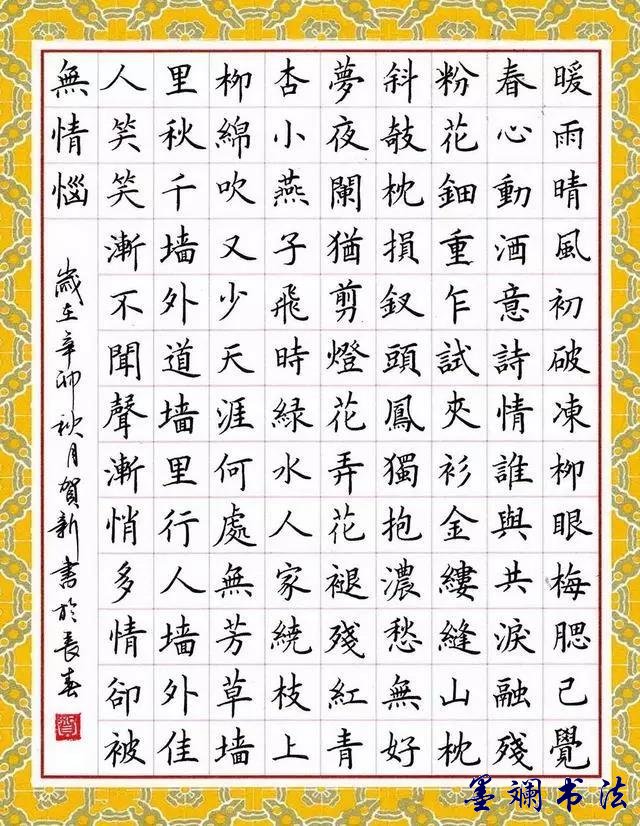 暖雨晴風初破凍柳眼梅腮已覺
春心動酒意詩情誰與共淚融殘
粉花鈿重乍試夾衫金縷縫山枕
斜敧枕損釵頭鳳獨抱濃愁無好
夢夜闌猶剪燈花弄花褪殘紅青
杏小燕子飛時綠水人家繞枝上
柳綿吹又少天涯何處無芳草墙
里秋千墙外道墙里行人墙外佳
人笑笑漸不聞聲漸悄多情卻被
無情惱
歲在辛卯秋月賀新書於長春
墨斓书法